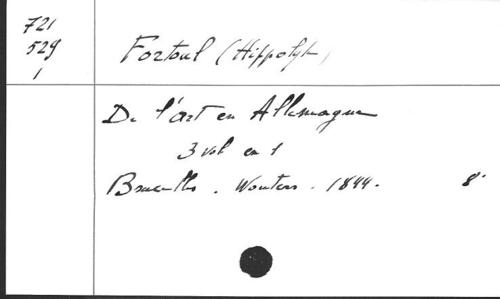 721
529
1
Fortoul (Hippolyte)
De l'art en Allemagne
3 vol en 1
Bruxelles. Wouters. 1844. 8°